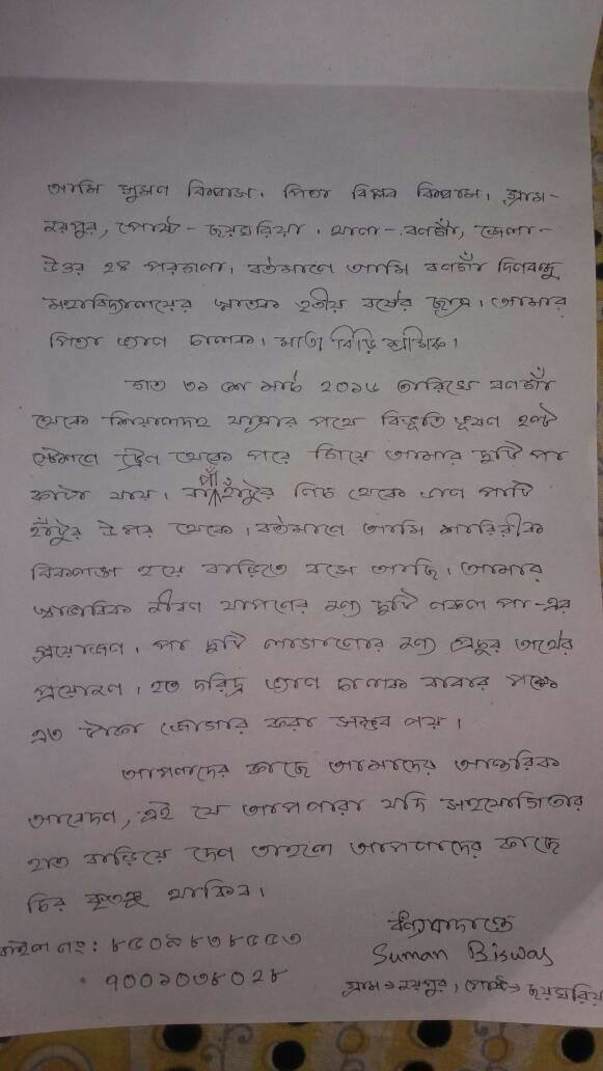 আমি সুমন বিশ্বাস। পিতা বিপ্লব বিশ্বাস। গ্রাম-
নয়পুর, পোস্ট - জয়ঘরিয়া। থানা - বনগাঁ, জেলা -
উত্তর ২৪ পরগনা। বর্তমানে আমি বনগাঁ দিনবন্ধু
মহাবিদ্যালয়ের স্নাতক তৃতীয় বর্ষের ছাত্র। আমার
পিতা ভ্যান চালক। মাতা বিঁড়ি শ্রমিক।
গত ৩১ শে মার্চ ২০১৫ তারিখে বনগাঁ
থেকে শিয়ালদহ যাত্রার পথে বিভূতি ভূষণ হল্ট
স্টেশনে ট্রেন থেকে পরে গিয়ে আমার দুটি পা
কাটা যায়। বাঁ পা হাঁটুর নিচ থেকে ডান পাটি
হাঁটুর উপর থেকে। বর্তমানে আমি শারিরীক
বিকলাঙ্গ হয়ে বাড়িতে বসে আছি। আমার
স্বাভাবিক জীবন যাপনের জন্য দুটি নকল পা-এর
প্রয়োজন। পা দুটি লাগানোর জন্য প্রচুর অর্থের
প্রয়োজন। হত দরিদ্র ভ্যান চালক বাবার পক্ষে
এত টাকা জোগার করা সম্ভব নয়।
আপনাদের কাছে আমাদের আন্তরিক
আবেদন, এই যে আপনারা যদি সহযোগিতার
হাত বাড়িয়ে দেন তাহলে আপনাদের কাছে
চির কৃতজ্ঞ থাকিব।
ধন্যবাদান্তে
Suman Biswas
গ্রাম → নয়পুর, পোস্ট → জয়ঘরিয়া
নং: ৮৫০১৮৩৮৫৫৩
৭০০১০৩৮০২৮